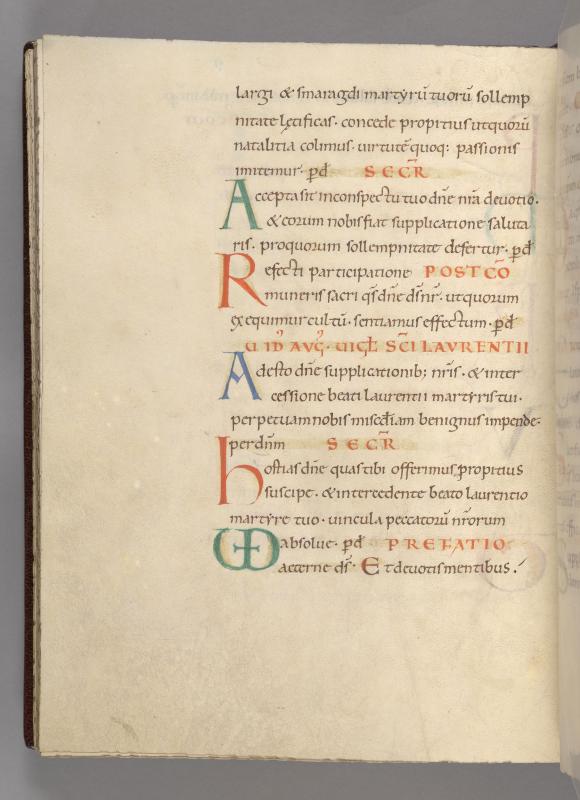 largi & smaragdi martyrū tuorū sollemp
nitate lętificas · concede propitius utquorū
natalitia colimus · uirtutē quoq: passionis
imitemur · p̄d SECR̄
Accepta sit inconspectu tuo dn̄e nr̄a deuotio ·
& eorum nobis fiat supplicatione saluta
ris · proquorum sollempnitate defertur · p̄d
Refecti participatione POST CŌ
muneris sacri qs̄ dn̄e ds̄ nr̄ · utquorum
exequimur cultū · sentiamus effectum · p̄d
U ID AUḠ · UIGL̄ SC̄I LAURENTII
Adesto dn̄e supplicationib; nr̄is · & inter
cessione beati laurentii martyris tui ·
perpetuam nobis misc̄diam benignus impende ·
per dn̄m SECR̄
hostias dn̄e quas tibi offerimus ꝓpropitius
suscipe · & intercedente beato laurentio
martyre tuo · uincula peccatorū nr̄orum
absolue · p̄d PREFATIO
UD aeterne ds̄ · Et deuotis mentibus .